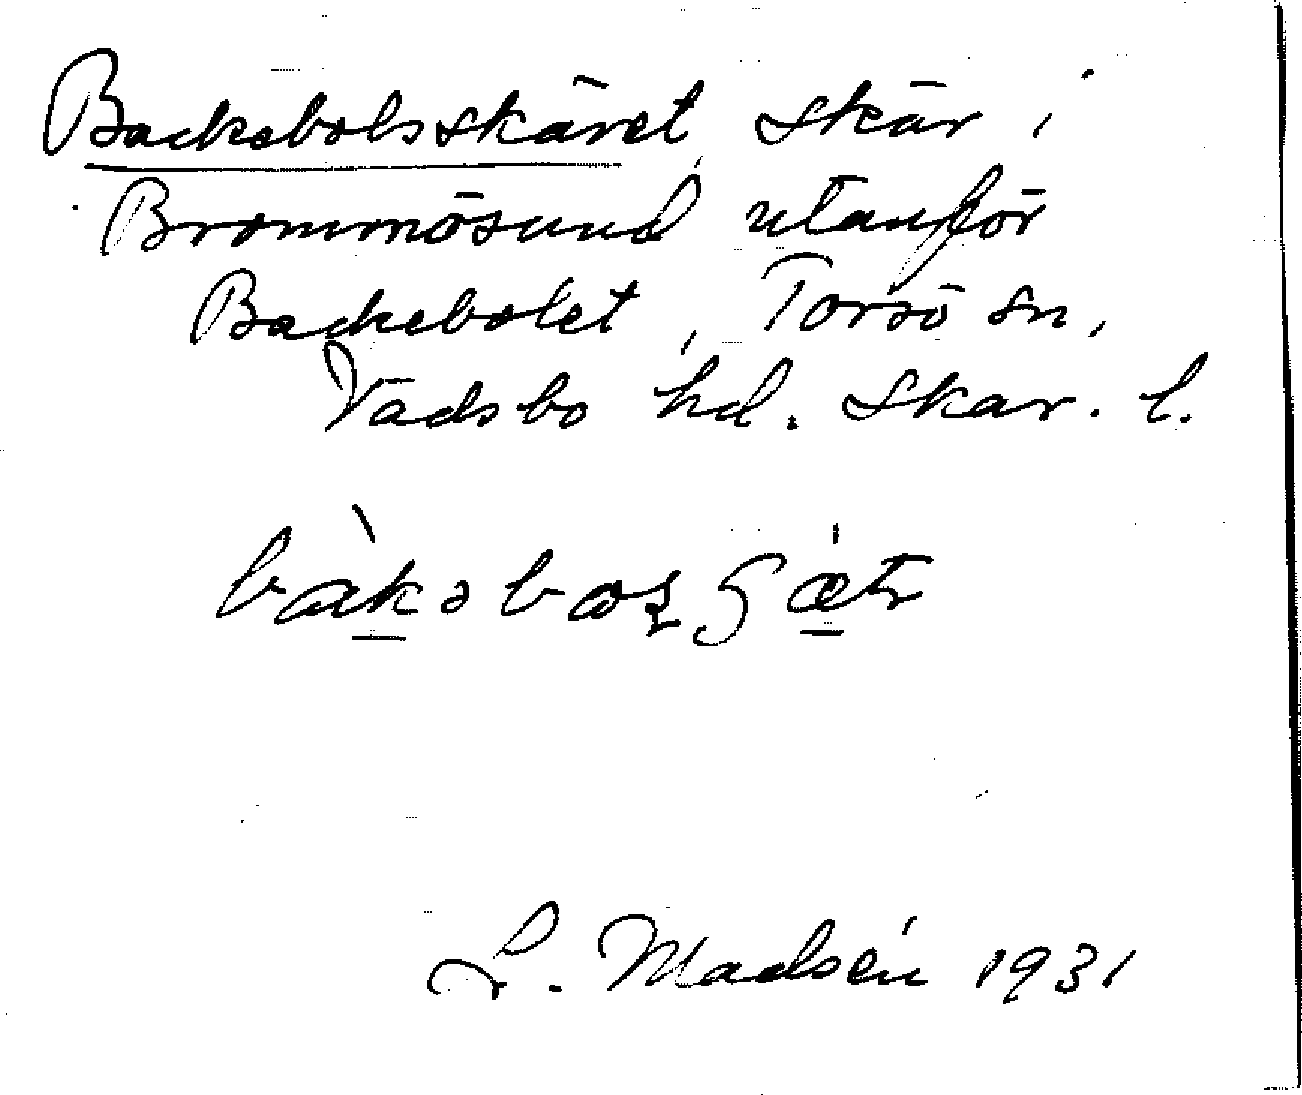 Backebolsskäret, skär i
Brommösund utanför
Backebolet, Torsö sn,
Vadsbo hd. Skar. l.
L. Madsén 1931